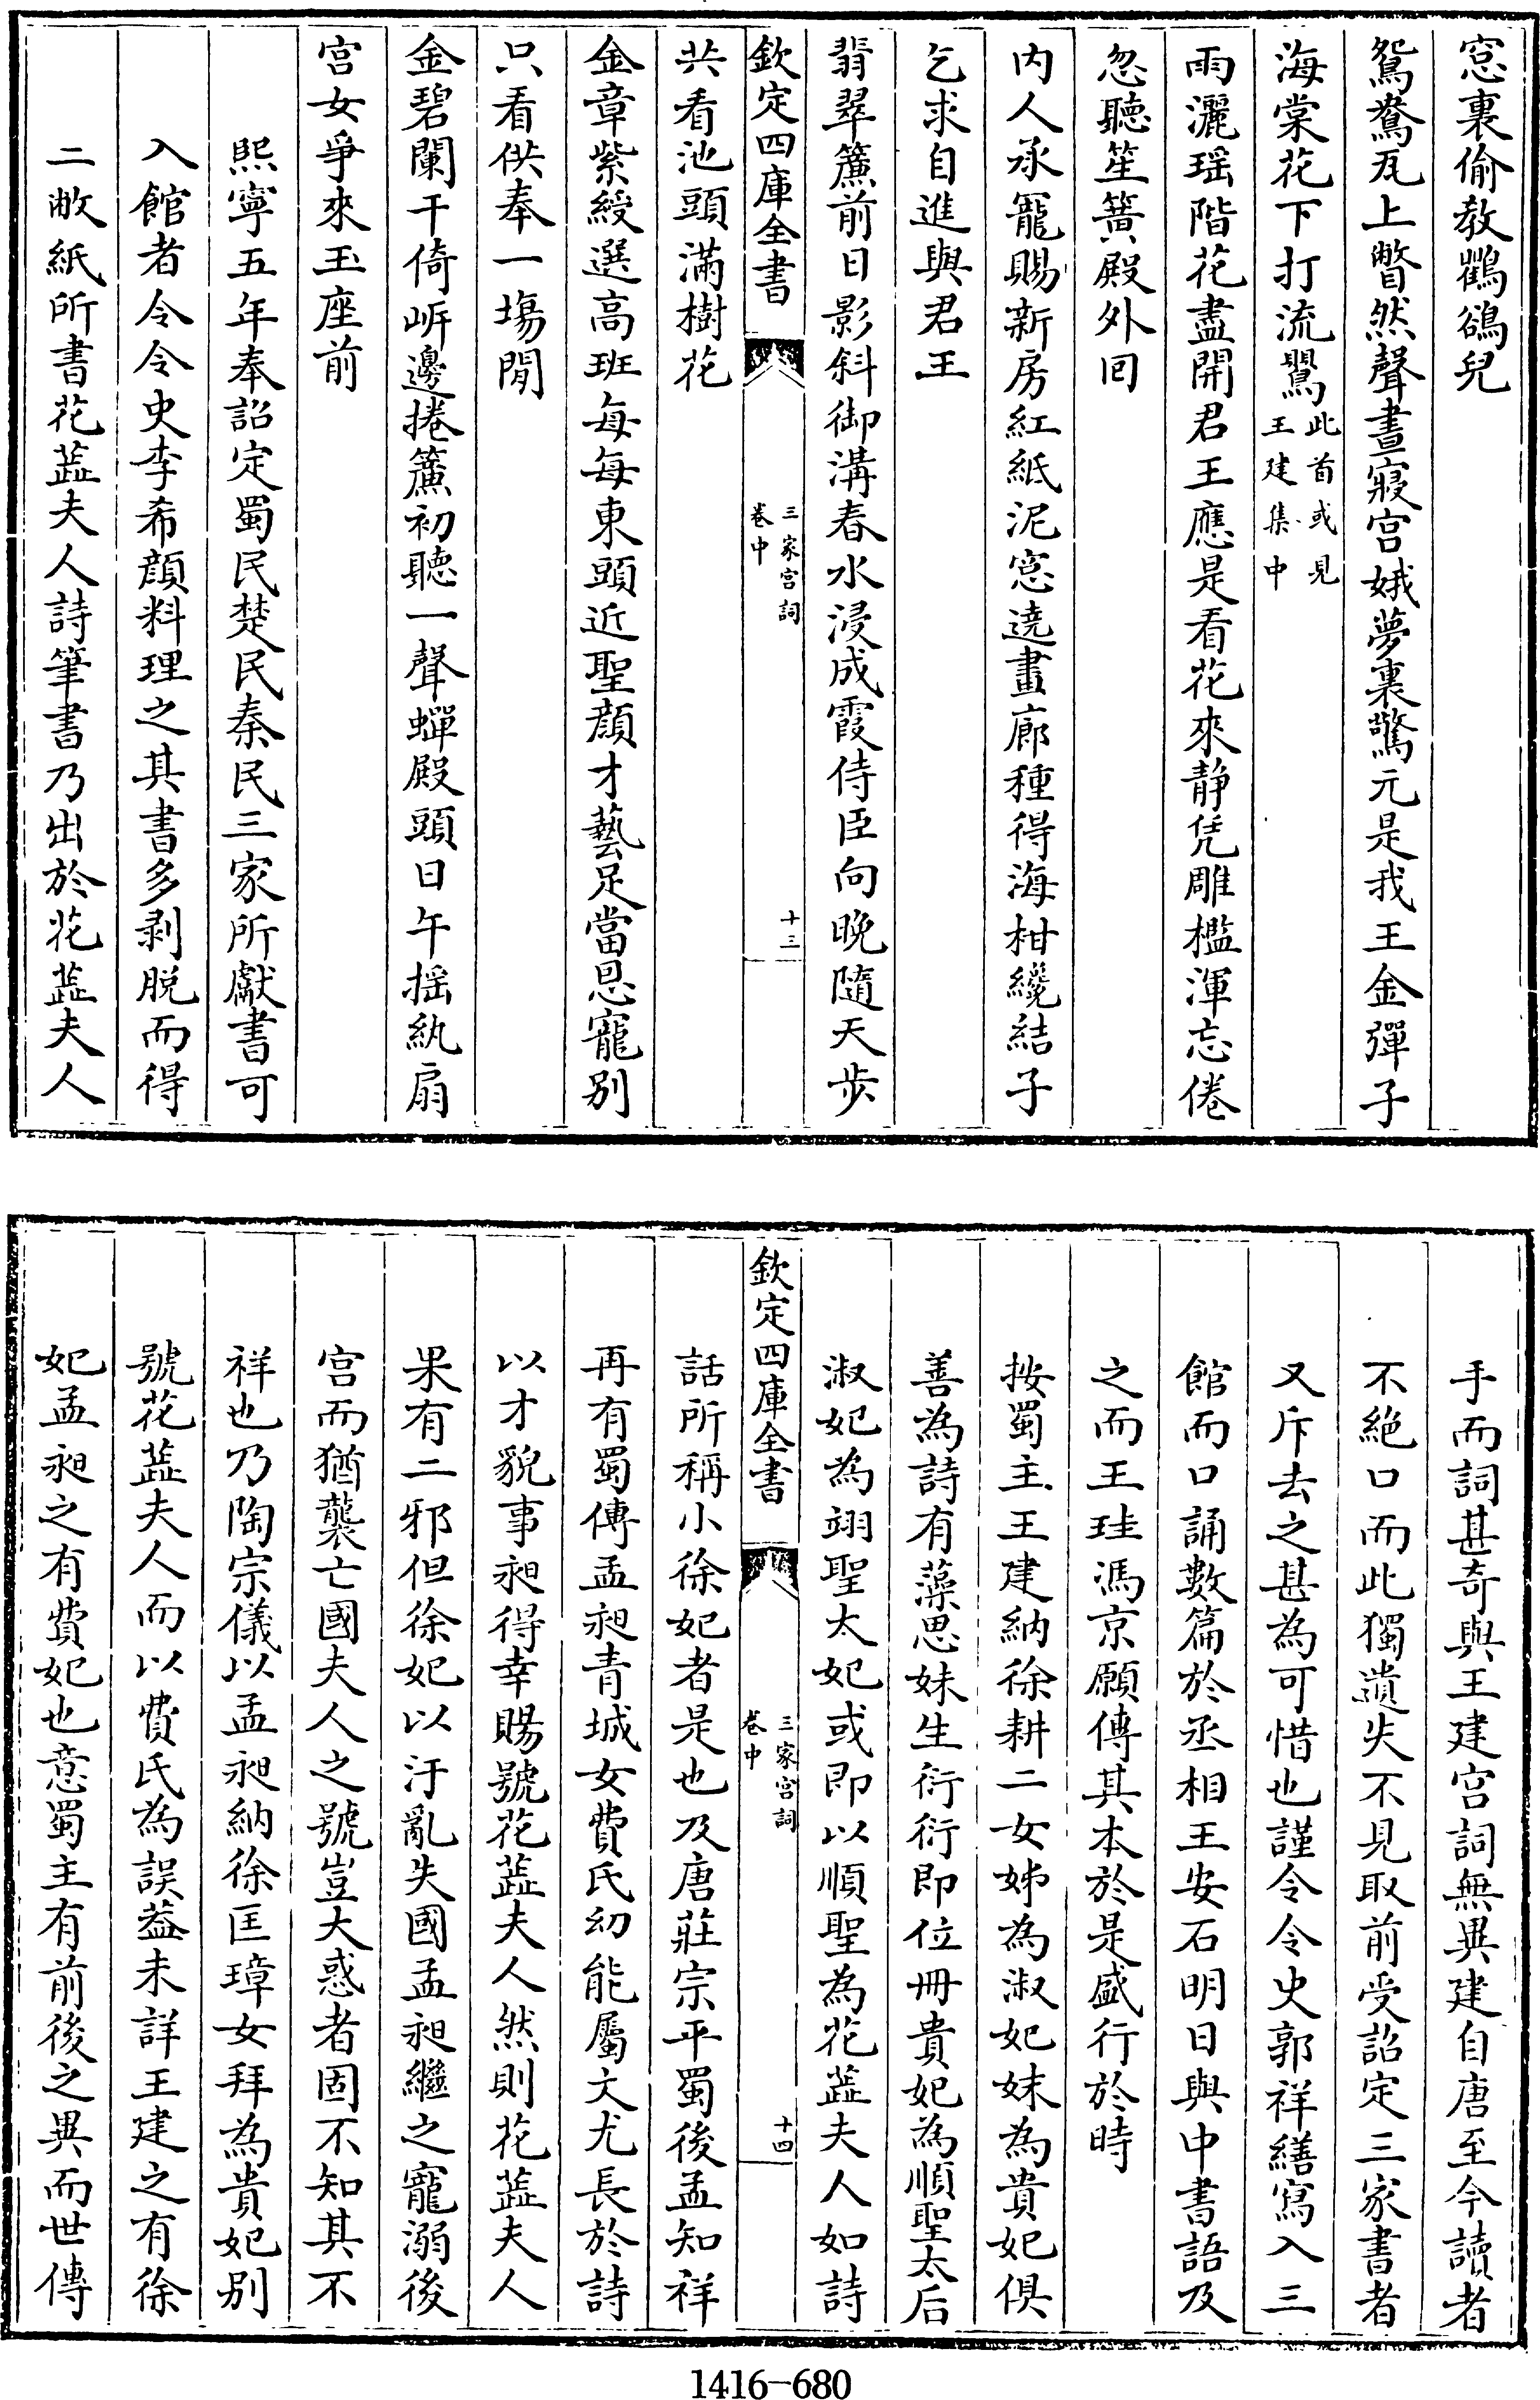 窓裏偷教鸜鵒兒
鴛鴦瓦上瞥然聲晝寢宫娥夢裏驚元是我王金彈子
海棠花下打流鶯此首或見王建集中
雨灑瑶階花盡開君王應是看花來静凭雕檻渾忘倦
忽聽笙簧殿外回
内人承寵賜新房紅紙泥窓遶畫廊種得海柑纔結子
乞求自進與君王
翡翠簾前日影斜御溝春水浸成霞侍臣向晚隨天步
欽定四庫全書
三家宫詞
卷中
十三
共看池頭滿樹花
金章紫綬選高班每每東頭近聖顔才藝足當恩寵别
只看供奉一塲閒
金碧闌干倚岍邊捲簾初聽一聲蟬殿頭日午揺紈扇
宫女爭來玉座前
熙寧五年奉詔定蜀民楚民秦民三家所獻書可
入館者令令史李希顔料理之其書多剥脱而得
二敝紙所書花蘂夫人詩筆書乃出於花蘂夫人
手而詞甚奇與王建宫詞無異建自唐至今讀者
不絶口而此獨遺失不見取前受詔定三家書者
又斥去之甚為可惜也謹令令史郭祥繕寫入三
館而口誦數篇於丞相王安石明日與中書語及
之而王珪馮京願傳其本於是盛行於時
按蜀主王建納徐耕二女姊為淑妃妹為貴妃俱
善為詩有藻思妹生衍衍即位冊貴妃為順聖太后
淑妃為翊聖太妃或即以順聖為花蘂夫人如詩
欽定四庫全書
三家宫詞
卷中
十四
話所稱小徐妃者是也及唐莊宗平蜀後孟知祥
再有蜀傳孟昶青城女費氏幼能屬文尤長於詩
以才貌事昶得幸賜號花蘂夫人然則花蘂夫人
果有二邪但徐妃以汙亂失國孟昶繼之寵溺後
宫而猶襲亡國夫人之號豈大惑者固不知其不
祥也乃陶宗儀以孟昶納徐匡璋女拜為貴妃别
號花蘂夫人而以費氏為誤葢未詳王建之有徐
妃孟昶之有費妃也意蜀主有前後之異而世傳
1416-680